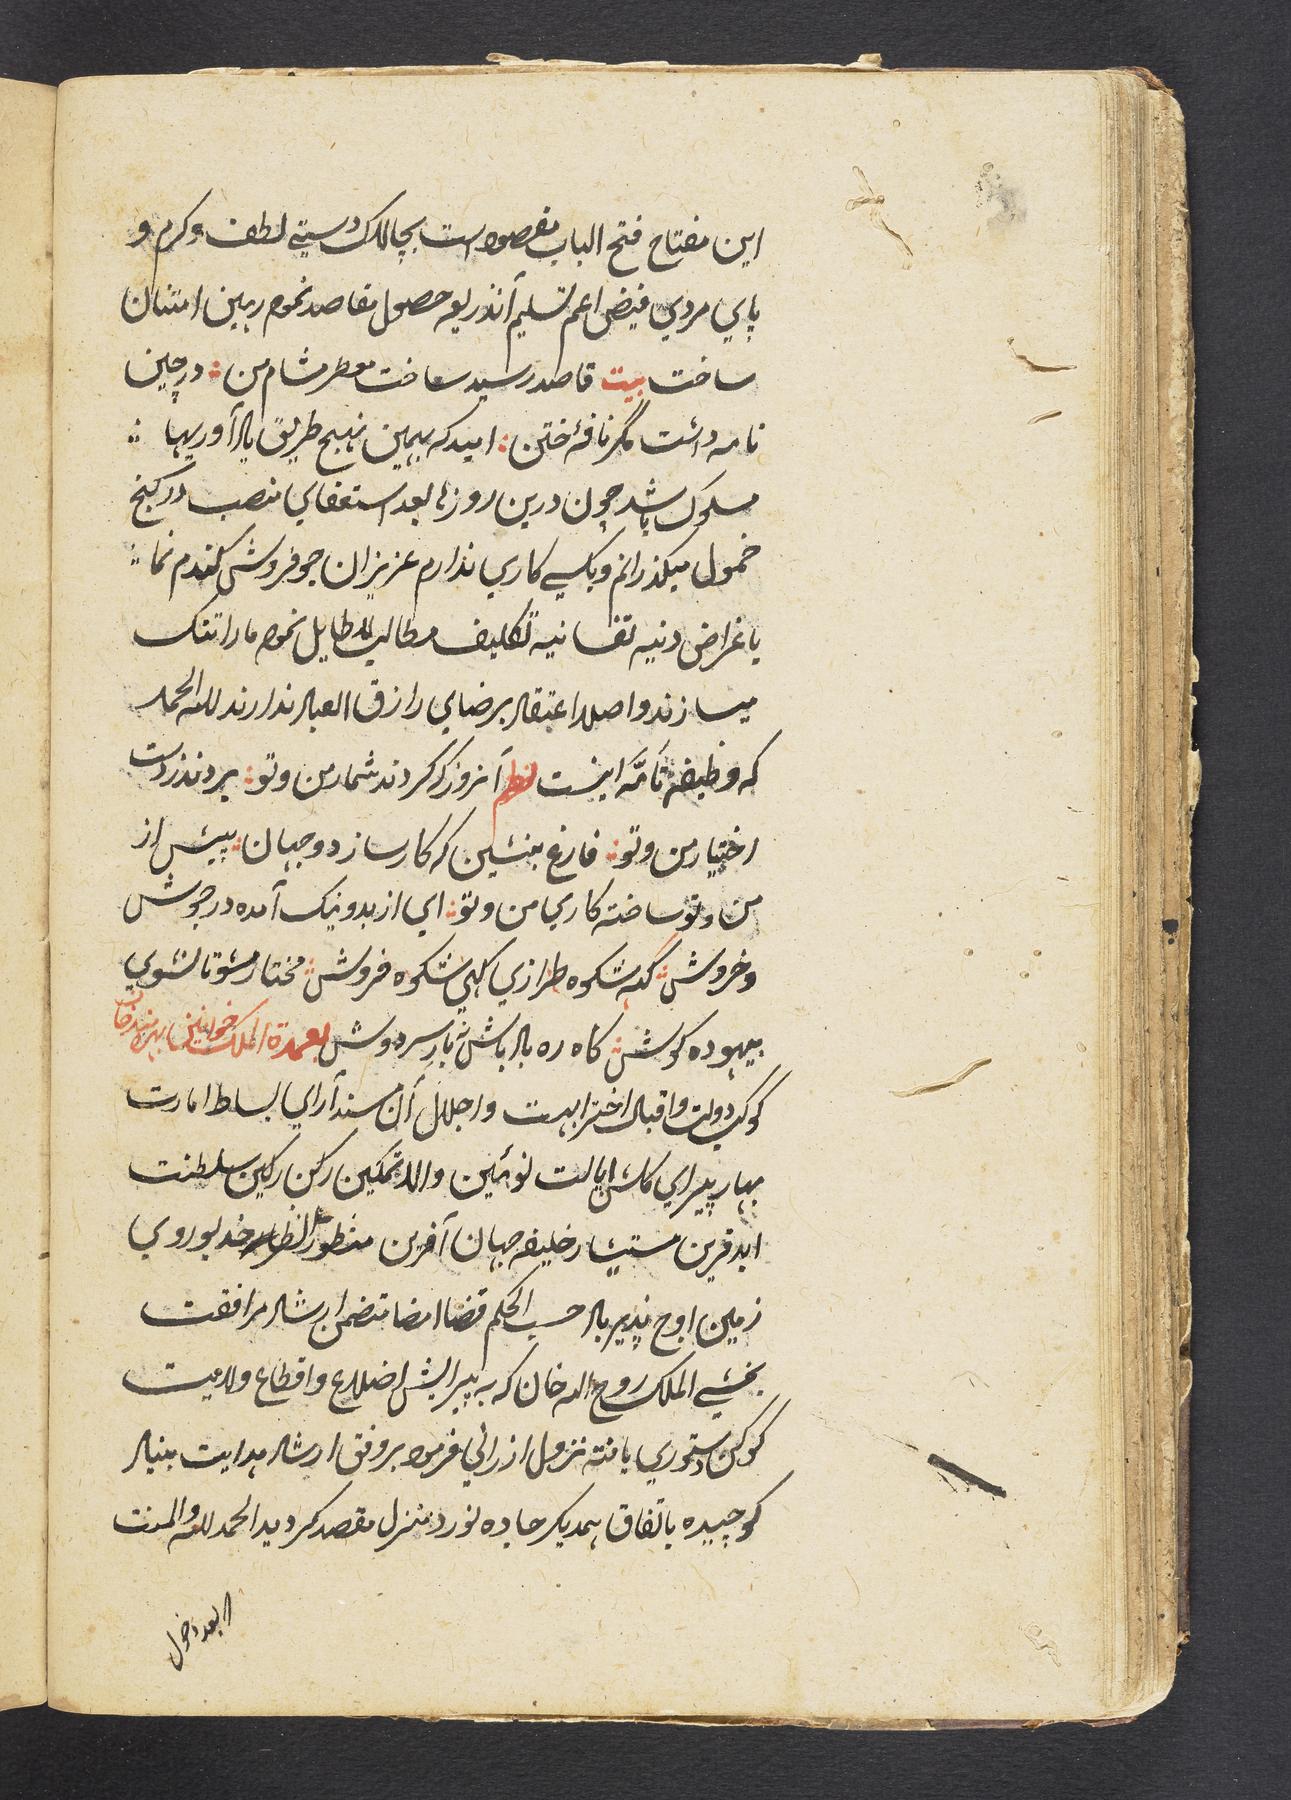 این مفتاح فتح الباب مقصود است بچالاک دستیی لطف و کرم و
پای مردی فیض اعم تسلیم آنذریعه حصول مقاصد نموده رهین امتنان
ساخت بیت قاصد رسید ساخت معطر مشام من ؛ در چین
نامه داشت مگر نافهٔ ختن ؛ امید که بهمین نهج طریق یاد آوریها ؛
مسلوک باشد چون درین روزها بعد استعفای منصب در کنج
خمول میگذرانم و بکسے کاری ندارم عزیزان جو فروش گندم نما ؛
باغراض دنیه نفسانیه تکلیف مطالب لاطایل نموده ما را تنگ
میسازند و اصلا اعتقاد برضای رازق العباد ندارند لله الحمد
که وظیفه تامّه اینست نظم آنروز که کردند شمار من و تو ؛ بردند ز دست
اختیار من و تو ؛ فارغ بنشین که کارساز دو جهان ؛ پیش از
من و تو ساخته کاری من و تو ؛ ای از بد و نیک آمده در جوش
و خروش ؛ گه شکوه طرازی گهی شکوه فروش ؛ مختار مشو تا نشوی
بیهوده کوش ؛ کاه ره باد باش نه بار سر دوش بعمدة الملک خوانین بهره مند خان
کوکب دولت و اقبال اختر ابهت و اجلال آن مسند آرای بساط امارت
بهار پیرای گلشن ایالت نوئین والا تمکین رکن رکین سلطنت
ابد قرین مستشار خلیفه جهان آفرین منظور النظر خدیو روی
زمین اوج پذیر باد حسب الحکم قضا امضا متضمن ارشاد مرافقت
بخشی الملک روح الله خان که به پیرایش اضلاع و اقطاع ولایت
کوکن دستوری یافته نزول ارزانی فرموده بر وفق ارشاد هدایت بنیاد
کوچیده باتفاق همدیگر جاده نورد منزل مقصد گردید الحمد لله والمنت
بعد دخول